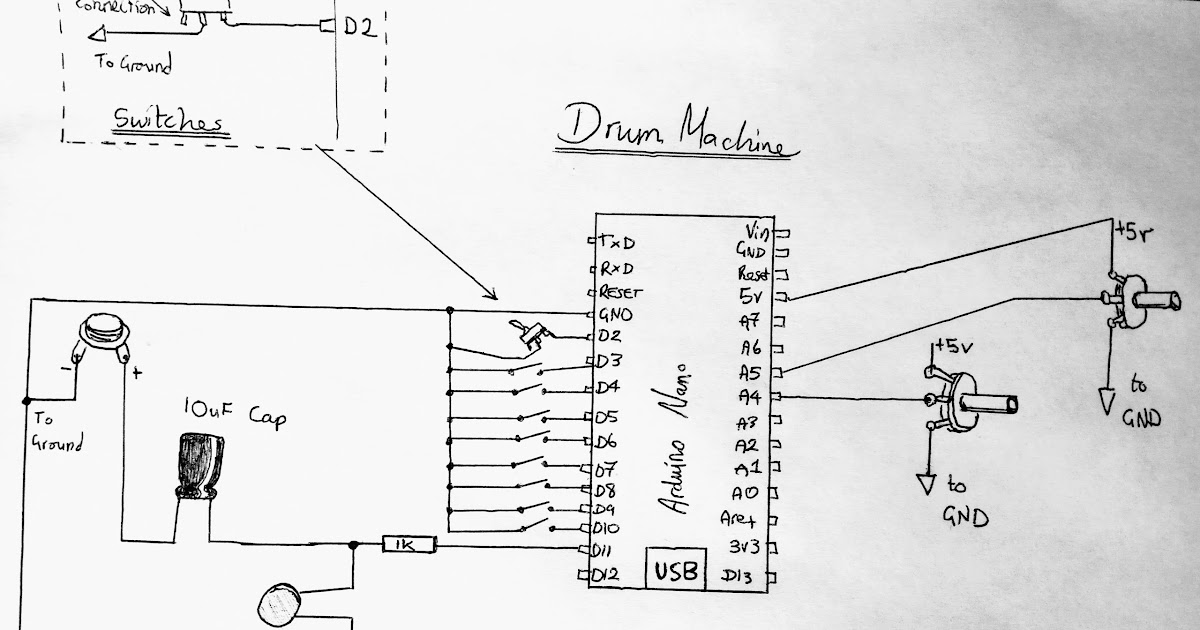 Connection
D2
To Ground
Switches
Drum Machine
TxD
RxD
RESET
GND
D2
D3
D4
D5
D6
D7
D8
D9
D10
D11
D12
Arduino Nano
USB
Vin
GND
Reset
5v
A7
A6
A5
A4
A3
A2
A1
A0
Aref
3v3
D13
+5v
to
GND
+5v
to
GND
-
+
To
Ground
10uF Cap
1K